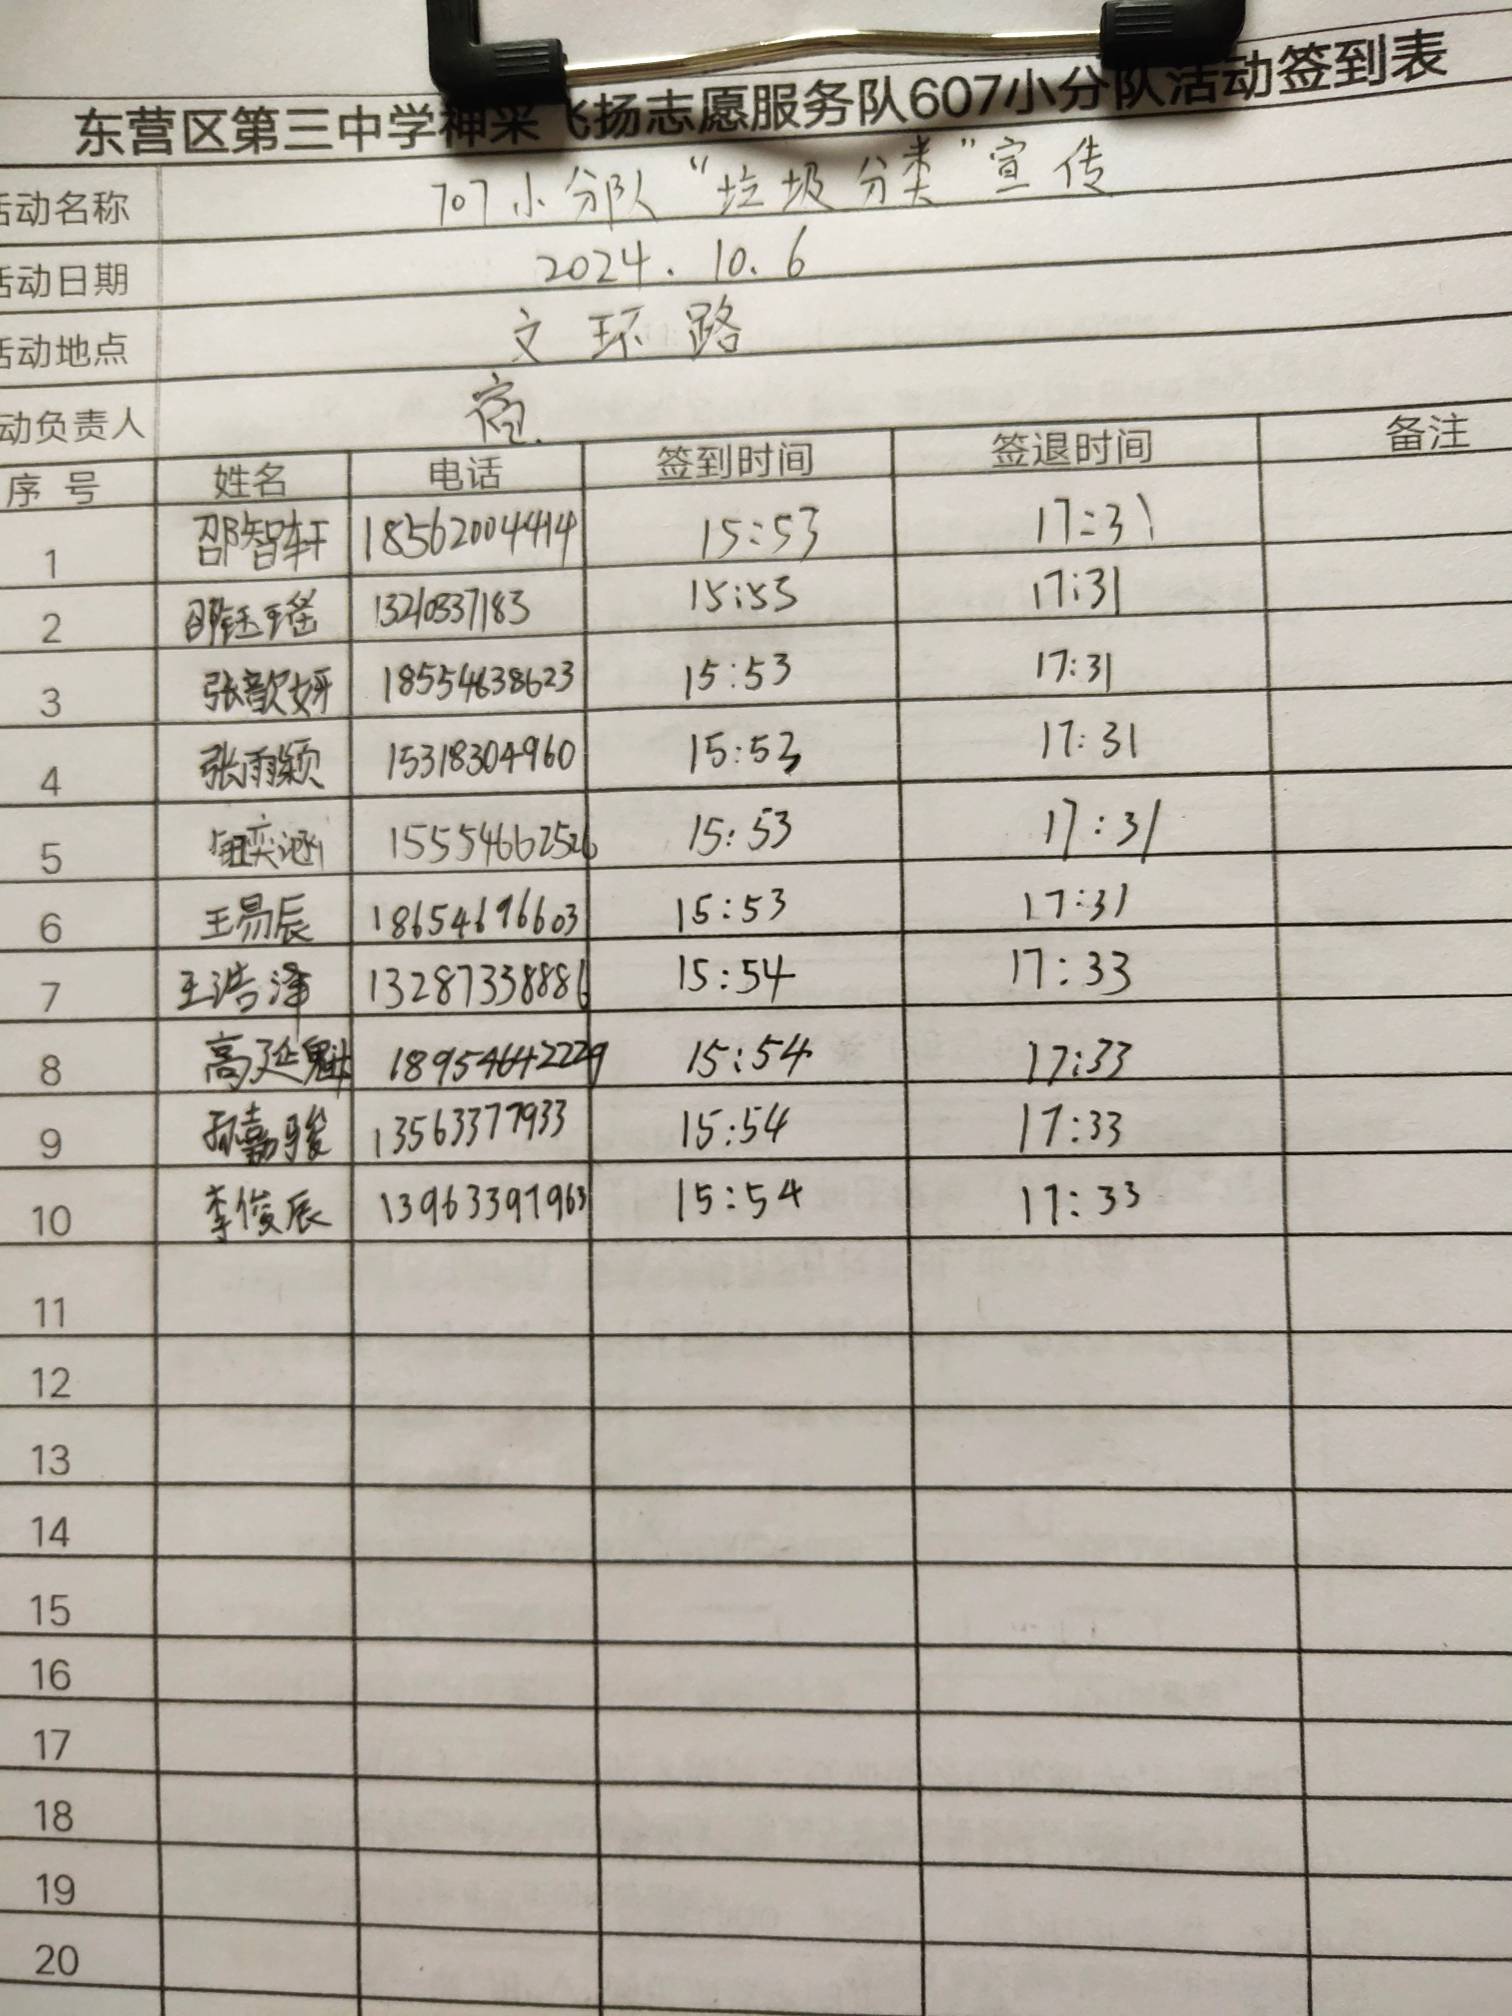 东营区第三中学神采飞扬志愿服务队607小分队活动签到表
活动名称 707小分队“垃圾分类”宣传
活动日期 2024.10.6
活动地点 文环路
动负责人
序号 姓名 电话 签到时间 签退时间 备注
1 邵智轩 18562004414 15:53 17:31
2 邵钰瑶 13210337183 15:53 17:31
3 张歆妍 18554638623 15:53 17:31
4 张雨颖 15318304960 15:53 17:31
5 奕涵 15554662526 15:53 17:31
6 王易辰 18654696603 15:53 17:31
7 王浩泽 13287338886 15:54 17:33
8 高延魁 18954642229 15:54 17:33
9 孙嘉骏 13563377933 15:54 17:33
10 李俊辰 13963397963 15:54 17:33
11
12
13
14
15
16
17
18
19
20